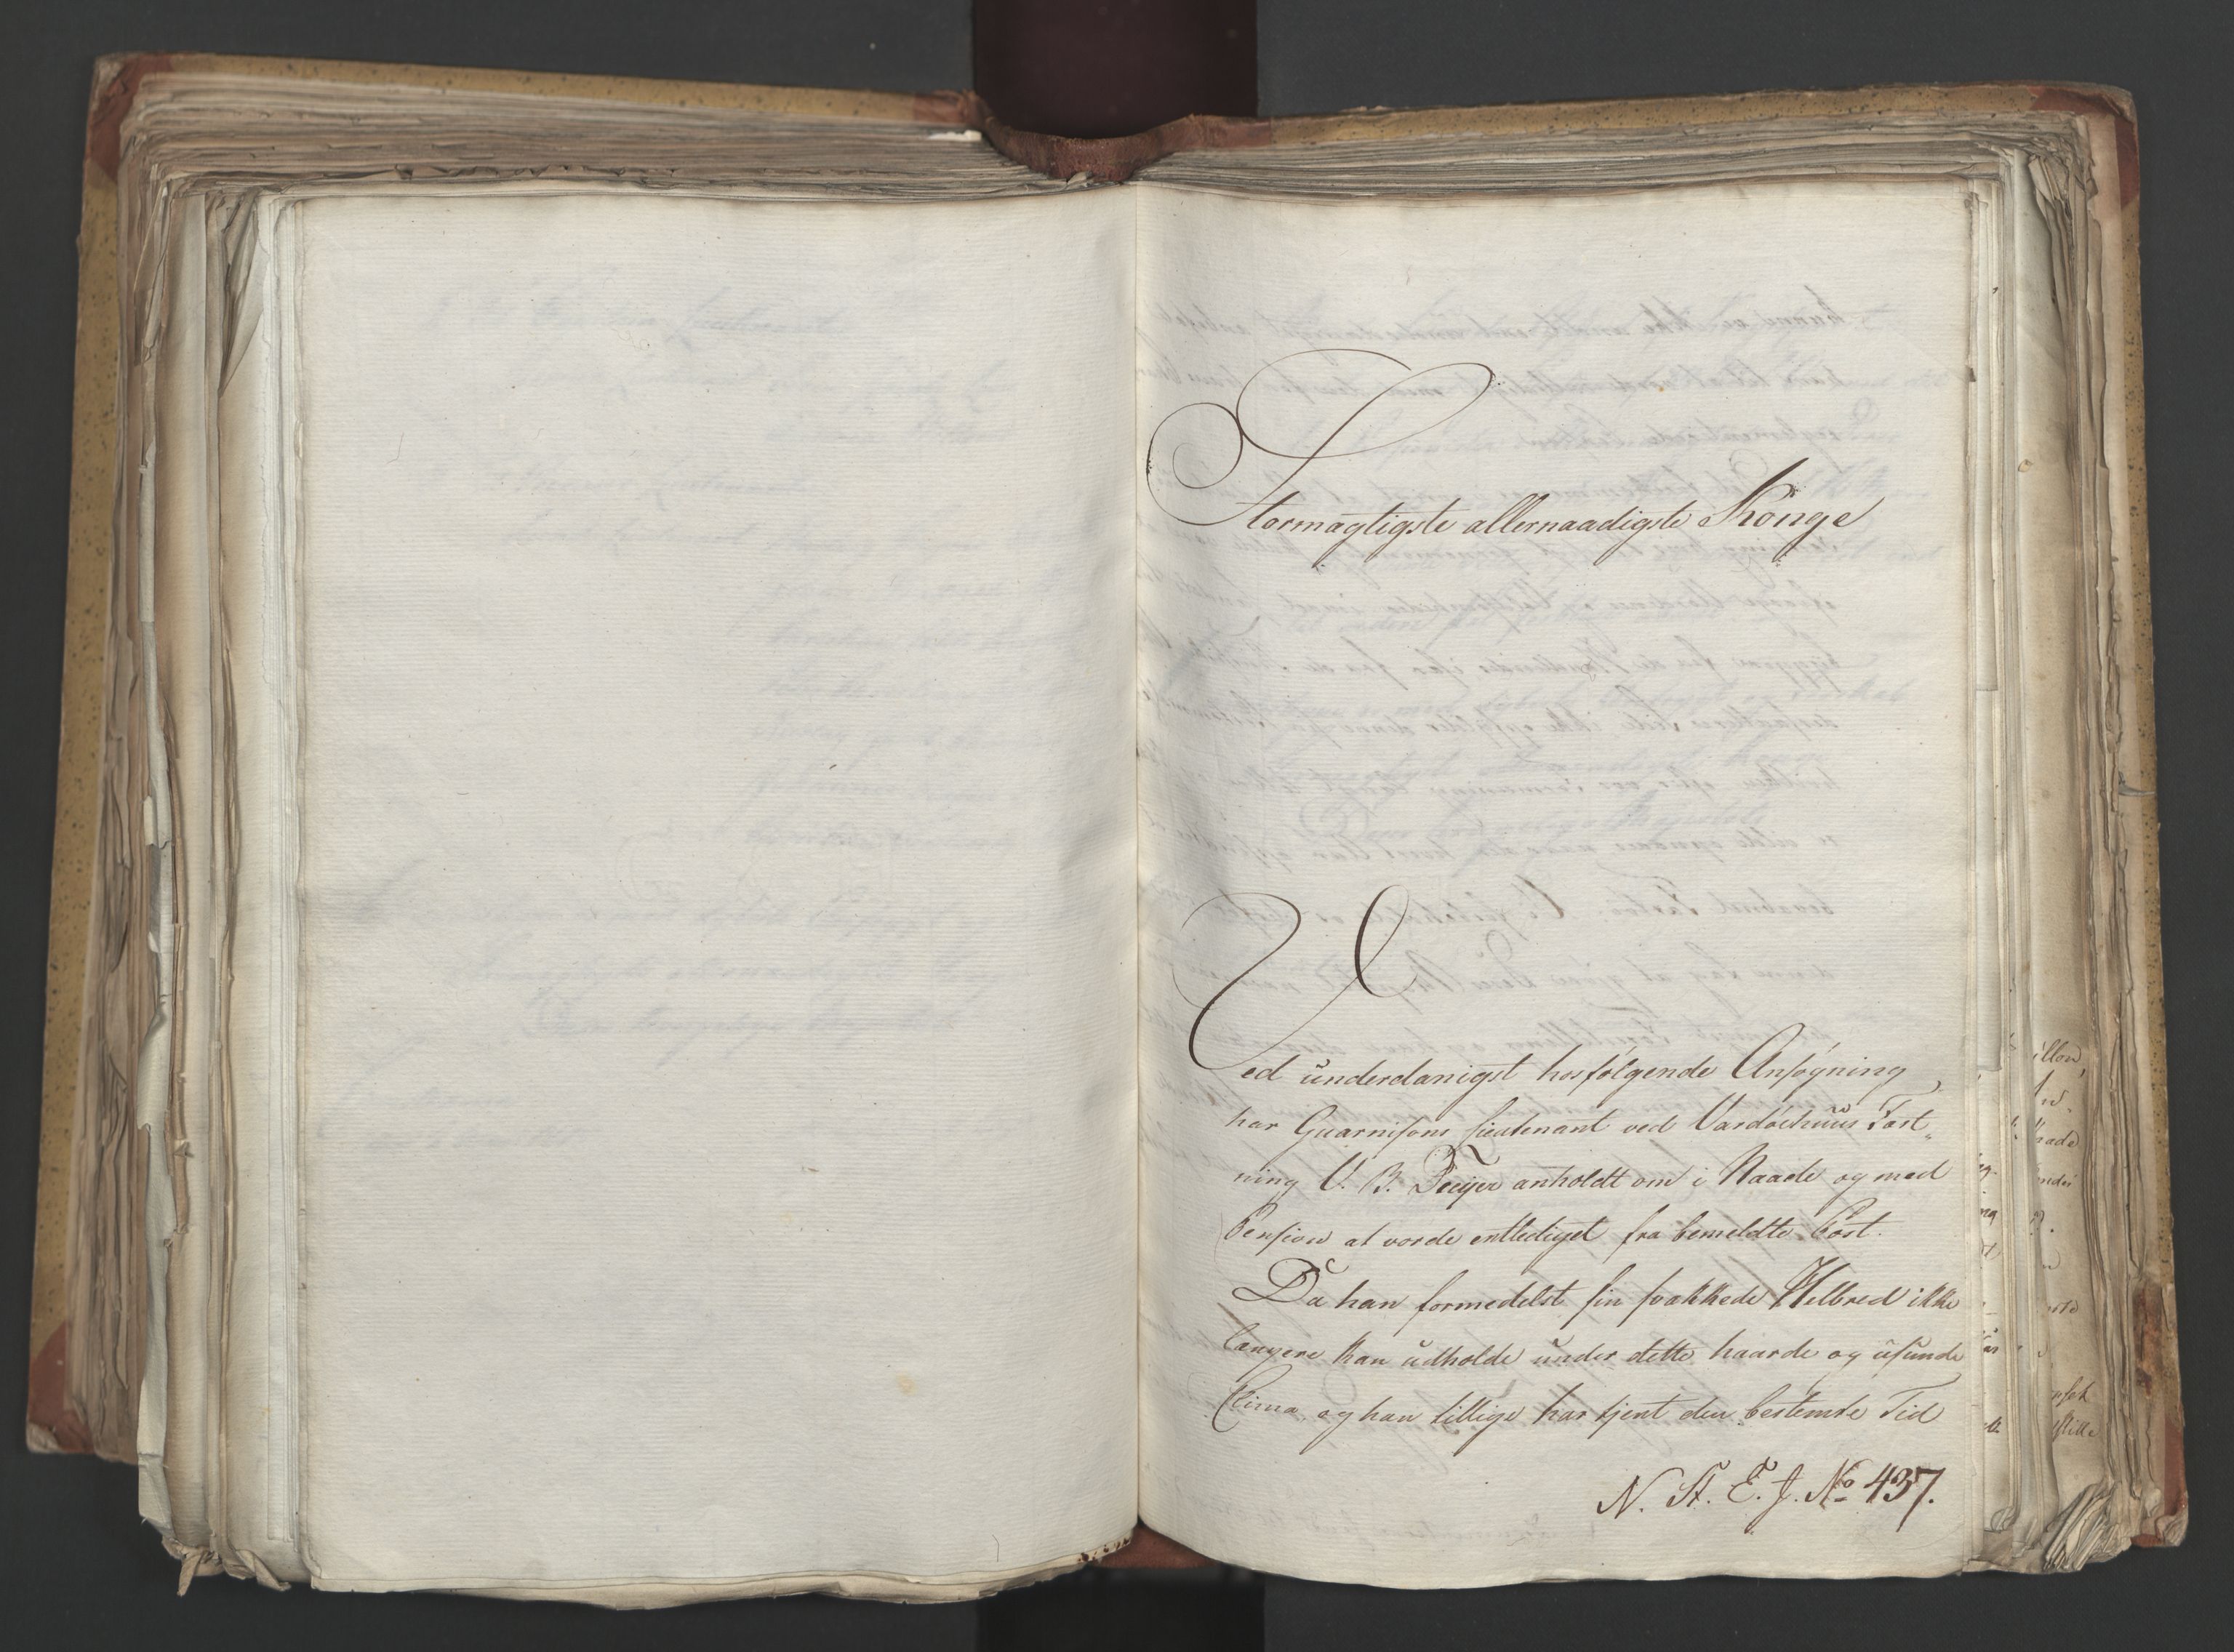 Stormægtigste allernaadigste Konge
Ved underdanigst hosfølgende Ansøgning
har Guarnisons Lieutenant ved Vardøehuus Fæst„
ning U. B. anholdt om i Naade og med
Pension at vorde entlediget fra bemeldte Post.
Da han formedelst sin svækkede Helbred ikke
længere kan udholde under dette haarde og usunde
Clima, og han tillige har tjent den bestemte Tid
N. A. E. J. No 437.